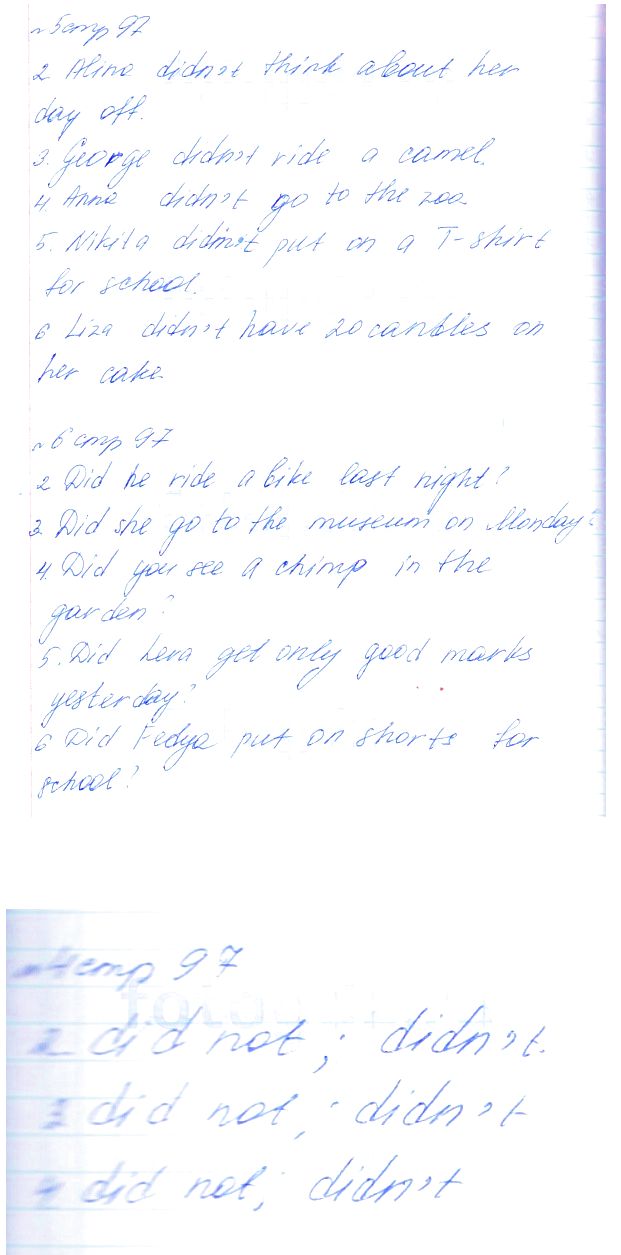 №5 стр 97
2 Alina didn't think about her
day off.
3. George didn't ride a camel.
4. Anna didn't go to the zoo
5. Nikita didn't put on a T-shirt
for school.
6 Liza didn't have 20 candles on
her cake
№6 стр 97
2 Did he ride a bike last night?
3. Did she go to the museum on Monday?
4. Did you see a chimp in the
garden?
5. Did Lera get only good marks
yesterday?
6 Did Fedya put on shorts for
school?
№4 стр 97
2 did not; didn't.
3 did not; didn't
4 did not; didn't